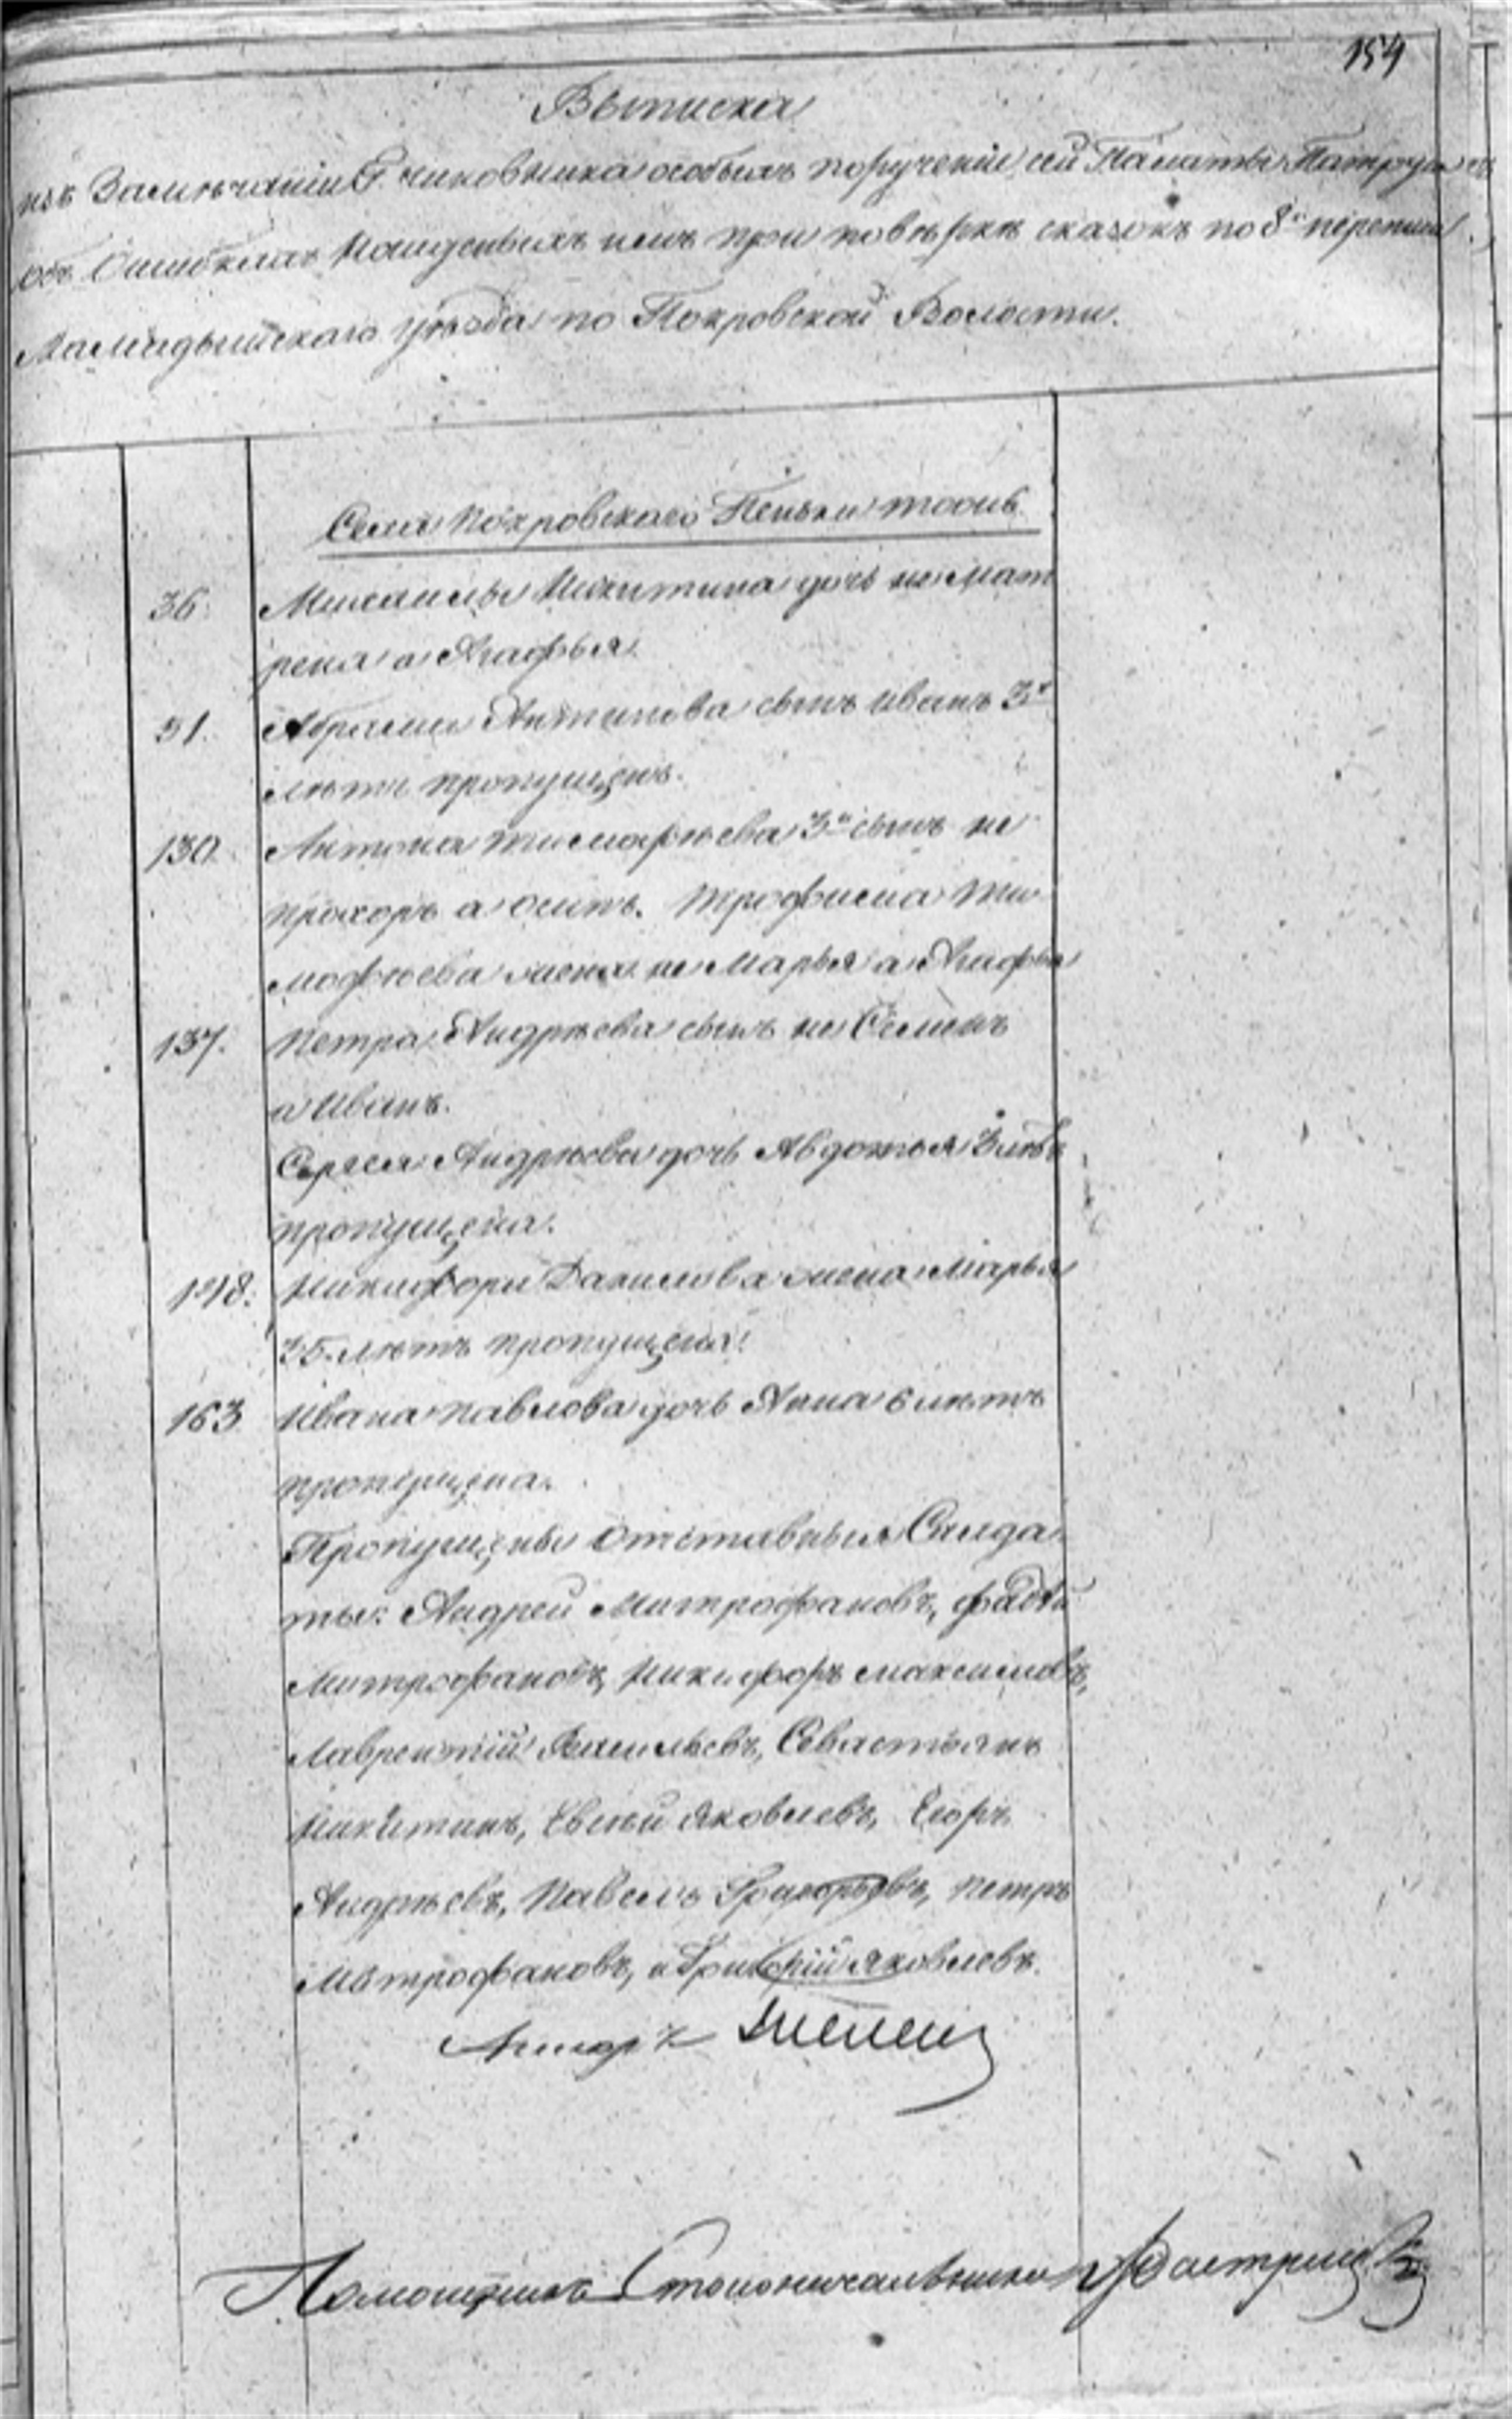 154
Выписка
изъ Замечаніи Г. чиновника особыхъ порученіи сей Палаты
объ Ошибкахъ Найденыхъ имъ при поверкѣ сказокъ по 8й переписи
Мамадышскаго уѣзда по Покровской Волости.
Села Покровскаго тожъ
36. Михаилы Никитина дочь не Мат
рена а Агафья.
51. Абрама Антипова сынъ Иванъ 3х
летъ пропущенъ.
130. Антона Тимофѣева 3й сынъ не
Прохоръ а Осипъ. Трофима Ти
мофѣева жена не Марья а Агафья
137. Петра Андрѣева сынъ не Семенъ
а Иванъ.
Сергея Андрѣева дочь Авдотья 3 летъ
пропущена.
148. Никифора Данилова жена Марья
35. летъ пропущена.
163 Ивана Павлова дочь Анна 6 летъ
пропущена.
Пропущены Отставныя Салда
ты: Андрей Митрофановъ, Фадѣй
Митрофановъ, Никифоръ Максимовъ,
Лаврентій Васильевъ, Севастьянъ
Никитинъ, Евсѣй Яковлевъ, Егоръ
Андрѣевъ, Павелъ Григорьевъ, Петръ
Митрофановъ, и Григорій Яковлевъ.
Помощникъ Столоначальника